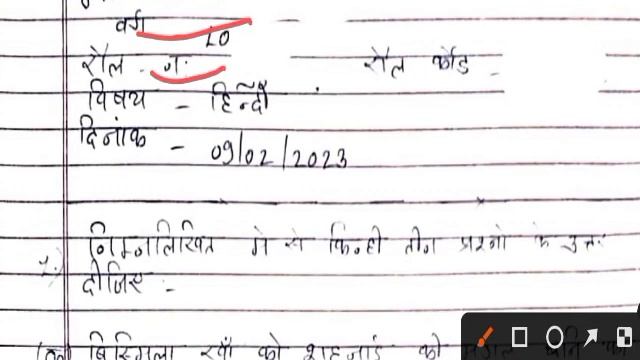 वर्ग 10
रौल न. रौल कोड -
विषय - हिन्दी
दिनांक - 09/02/2023
निम्नलिखित मे से किन्ही तीन प्रश्नो के
दीजिए :-
बिस्मिल्ला खाँ को शहनाई की मंगल ध्वनि का